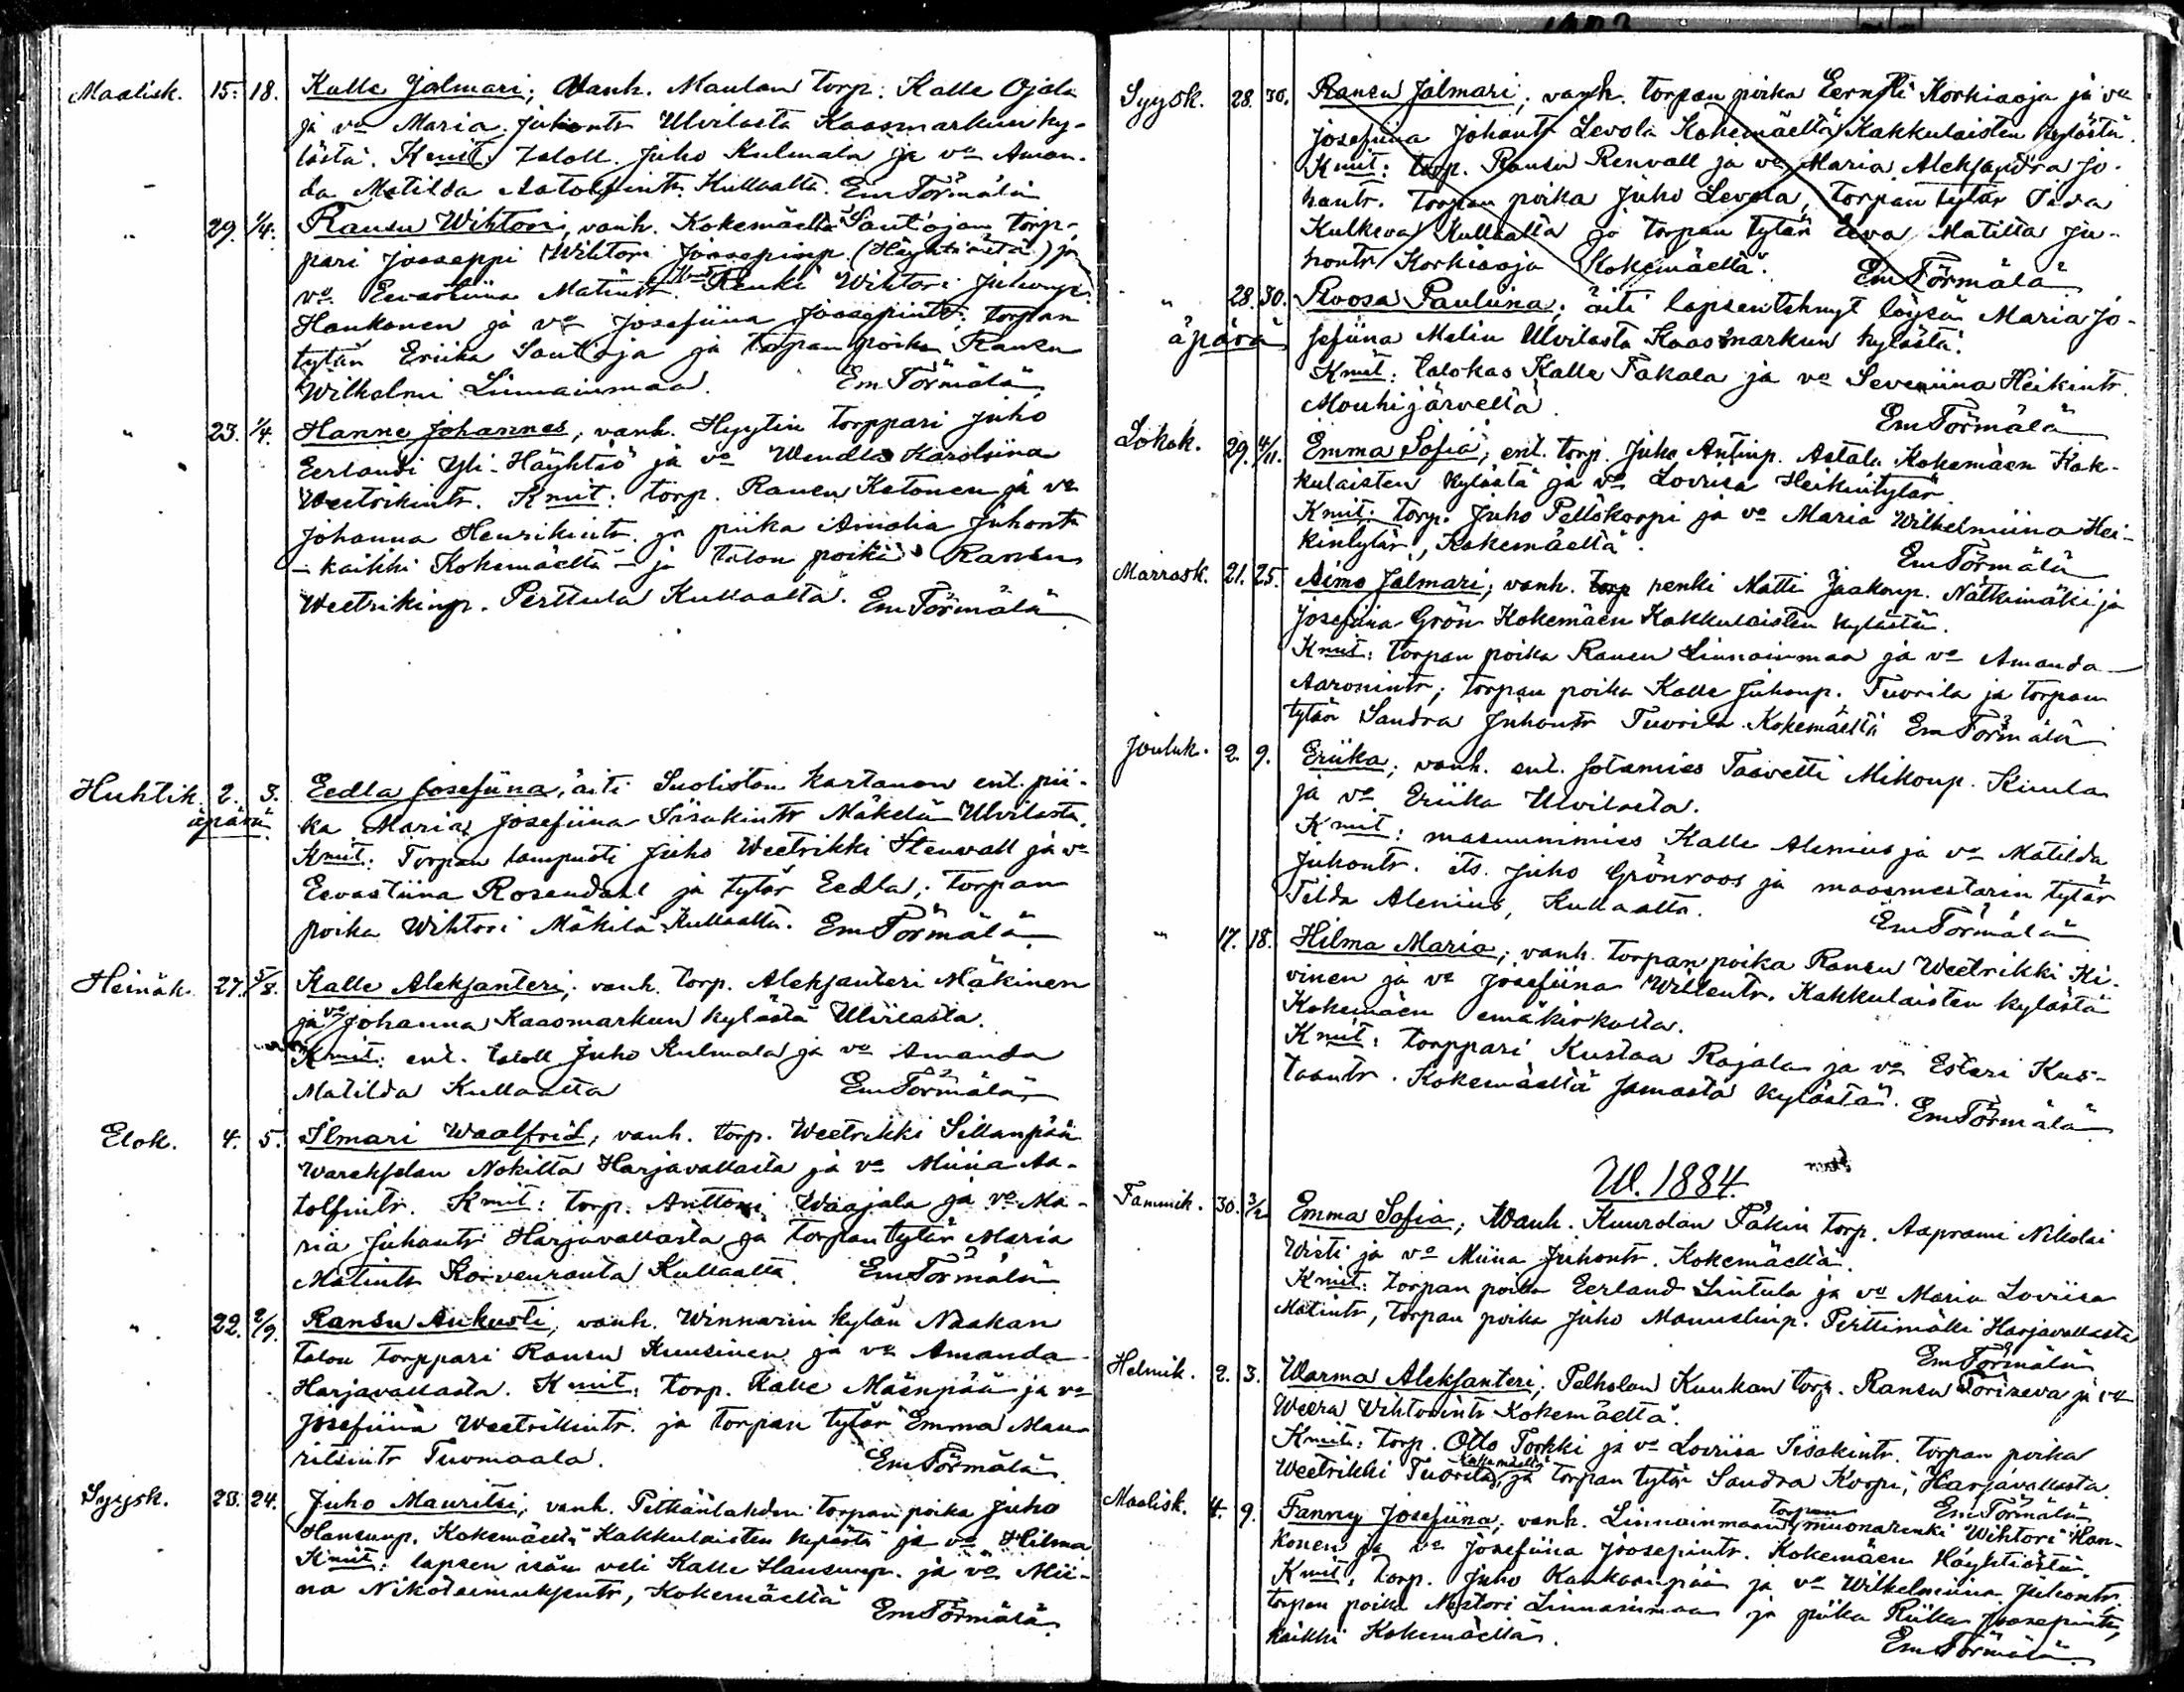 Maalisk. 15. 18. Kalle Jalmari; Vanh. Maulan torp. Kalle Ojala
ja vo Maria Juhontr Ulvilasta Kaasmarkun ky-
lästä. Kmit: taloll. Juho Kulmala ja vo Aman-
da Matilda Aatolfintr. Kullaalta. Em Törmälä
" 29. 1/4. Ransu Wihtori; vanh. Kokemäeltä Santojan torp-
pari Jooseppi Wihtori Joosepinp. (Häyhtiöstä) ja
vo Eevastiina Matintr. Kmit: Renki Wihtori Juhonp.
Honkonen ja vo Josefiina Joosepintr; torpan
tytär Eriika Santoja ja torpan poika Ransu
Wilhelmi Linnainmaa. Em Törmälä
" 23. 1/4. Hanne Johannes; vanh. Hyytin torppari Juho
Eerlandi Yli-Häyhtiö ja vo Wendla Karoliina
Weetrikintr. Kmit: torp. Ransu Ketonen ja vo
Johanna Henrikintr. ja piika Amalia Juhontr
– kaikki Kokemäeltä – ja talon poika Ransu
Weetrikinp. Perttula Kullaalta. Em Törmälä
Huhtik. 2. 3. Eedla Josefiina; äiti Suoliston kartanon ent. pii-
äpärä ka Maria Josefiina Iisakintr Mäkelä Ulvilasta.
Kmit: Torpan lampuoti Juho Weetrikki Stenvall ja vo
Eevastiina Rosendahl ja tytär Eedla; torpan
poika Wihtori Mäkilä Kullaalta. Em Törmälä
Heinäk. 27. 5/8. Kalle Aleksanteri; vanh. torp. Aleksanteri Mäkinen
ja vo Johanna Kaasmarkun kylästä Ulvilasta.
Kmit: ent. taloll Juho Kulmala ja vo Amanda
Matilda Kullaalta Em Törmälä
Elok. 4. 5. Ilmari Waalfrid; vanh. torp. Weetrikki Sillanpää
Nokilta Harjavallasta ja vo Miina Aa-
tolfintr. Kmit: torp. Anttoni Waajala ja vo Ma-
ria Juhontr Harjavallasta ja torpan tytär Maria
Matintr Korvenranta Kullaalta. Em Törmälä
" 22. 2/9. Ransu Aukusti; vanh. Winnarin kylän Naakan
talon torppari Ransu Kuusinen ja vo Amanda
Harjavallasta. Kmit: torp. Kalle Mäenpää ja vo
Josefiina Weetrikintr. ja torpan tytär Emma Mau-
ritsintr Tuomaala. Em Törmälä
Syysk. 23. 24. Juho Mauritsi; vanh. Pitkänlahden torpan poika Juho
Hansunp. Kokemäeltä Kakkulaisten kylästä ja vo Hilma
Kmit: lapsen isän veli Kalle Hansunp. ja vo Mii-
na Nikodeimuksentr, Kokemäeltä
Em Törmälä
Syysk. 28. 30. Ransu Jalmari; vanh. torpan poika Eernsti Korkiaoja ja vo
Josefiina Johantr Levola Kokemäeltä Kakkulaisten kylästä.
Kmit: torp. Ransu Renvall ja vo Maria Aleksandra Jo-
hantr. torpan poika Juho Levola, torpan tytär
Kulkeva Kullaalta ja torpan tytär Eeva Matilta Ju-
hontr Korkiaoja Kokemäeltä. Em Törmälä
" 28. 30. Roosa Pauliina; äiti lapsentehnyt löysä Maria Jo-
äpärä sefiina Malin Ulvilasta Kaasmarkun kylästä.
Kmit: talokas Kalle Takala ja vo Seveniina Heikintr.
Mouhijärveltä. Em Törmälä
Lokak. 29. 4/11. Emma Sofia; ent. torp. Juho Antinp. Astala Kokemäen Kak-
kulaisten kylästä ja vo Loviisa Heikintytär.
Kmit: torp. Juho Peltokorpi ja vo Maria Wilhelmiina Hei-
kintytär, Kokemäeltä. Em Törmälä
Marrask. 21. 25. Aimo Jalmari; vanh. torp renki Matti Jaakonp. Nätkinmäki ja
Josefiina Grön Kokemäen Kakkulaisten kylästä.
Kmit: torpan poika Ransu Linnainmaa ja vo Amanda
Aaronintr; torpan poika Kalle Juhonp. Tuorila ja torpan
tytär Sandra Juhontr Tuorila Kokemäeltä Em Törmälä
Jouluk. 2. 9. Eriika; vanh. ent. sotamies Taavetti Mikonp. Kiuula
ja vo Eriika Ulvilasta.
Kmit: masuunimies Kalle Alenius ja vo Matilda
Juhontr. its. Juho Grönroos ja maasmestarin tytär
Tilda Alenius, Kullaalta. Em Törmälä
" 17. 18. Hilma Maria; vanh. torpan poika Ransu Weetrikki Ki-
vinen ja vo Josefiina Willentr. Kakkulaisten kylästä
Kokemäen emäkirkolta.
Kmit: torppari Kustaa Rajala ja vo Esteri Kus-
taantr. Kokemäeltä samasta kylästä. Em Törmälä
W. 1884.
Tammik. 30. 3/2 Emma Sofia; Vanh. Kuurolan Päkin torp. Aaprami Nikolai
Wisti ja vo Miina Juhontr. Kokemäeltä.
Kmit: torpan poika Eerland Lintula ja vo Maria Loviisa
Matintr, torpan poika Juho Manuelinp. Pirttimäki Harjavallasta
Em Törmälä
Helmik. 2. 3. Warma Aleksanteri; Pelholan Kuukan torp. Ransu Toriseva ja vo
Weera Vihtorintr Kokemäeltä.
Kmit: torp. Otto Torkki ja vo Loviisa Iisakintr. torpan poika
Weetrikki Tuorila, Kokemäeltä ja torpan tytär Sandra Korpi, Harjavallasta.
Em Törmälä
Maalisk. 4. 9. Fanny Josefiina; vanh. Linnainmaan torpan muonarenki Wihtori Hon-
konen ja vo Josefiina Joosepintr. Kokemäen Häyhtiöstä.
Kmit: torp. Juho Kankaanpää ja vo Wilhelmiina Juhontr.
torpan poika Nestori Linnainmaa ja piika Riika Joosepintr,
kaikki Kokemäeltä. Em Törmälä